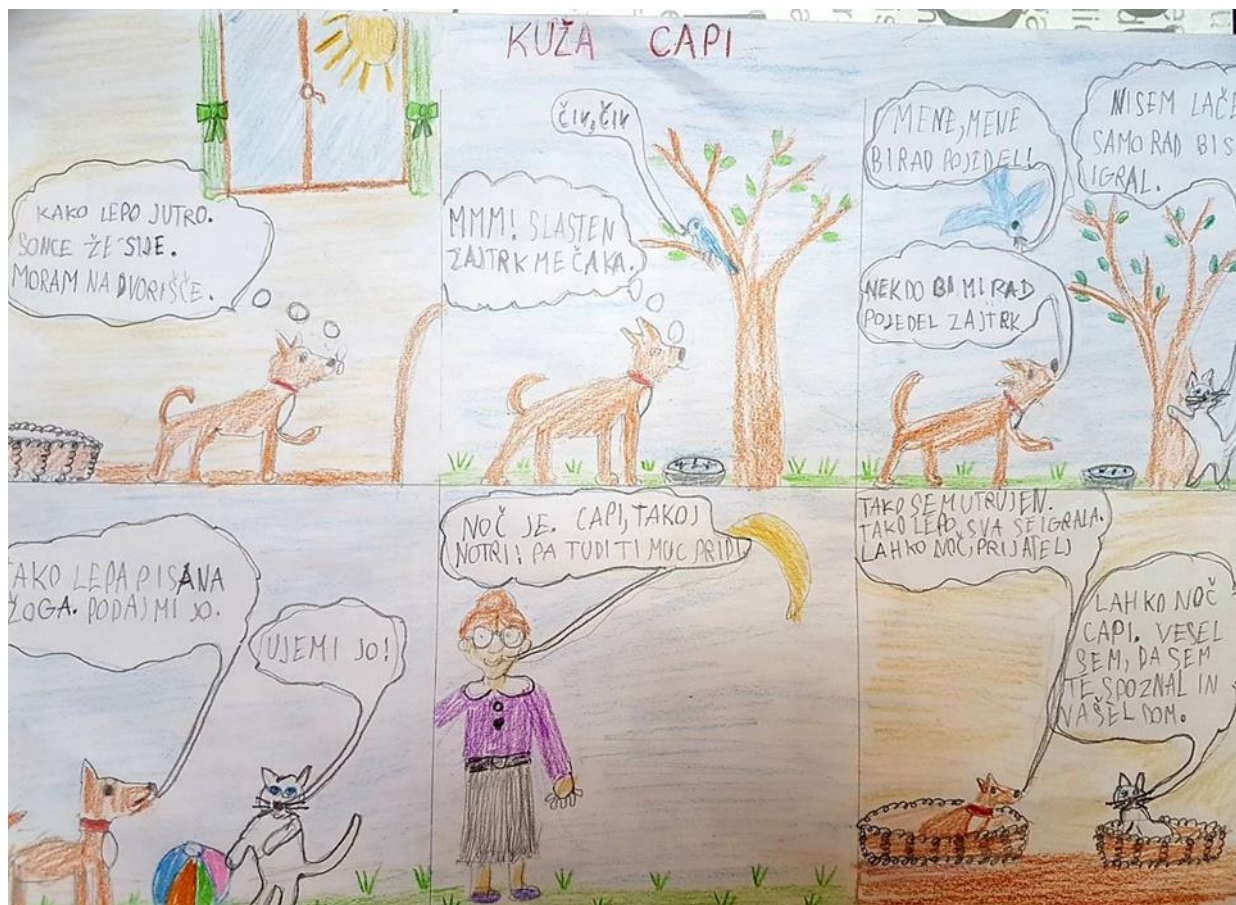 KUŽA CAPI
KAKO LEPO JUTRO.
SONCE ŽE SIJE.
MORAM NA DVORIŠČE.
ČIV, ČIV
MMM! SLASTEN
ZAJTRK ME ČAKA.
MENE, MENE
BI RAD POJEDEL!
NISEM LAČE
SAMO RAD BI S
IGRAL.
NEKDO BI MI RAD
POJEDEL ZAJTRK
TAKO LEPA PISANA
ŽOGA. PODAJ MI JO.
UJEMI JO!
NOČ JE. CAPI, TAKOJ
NOTRI! PA TUDI TI MUC PRIDI
TAKO SEM UTRUJEN.
TAKO LEPO SVA SE IGRALA.
LAHKO NOČ, PRIJATELJ
LAHKO NOČ
CAPI. VESEL
SEM, DA SEM
TE SPOZNAL IN
NAŠEL DOM.